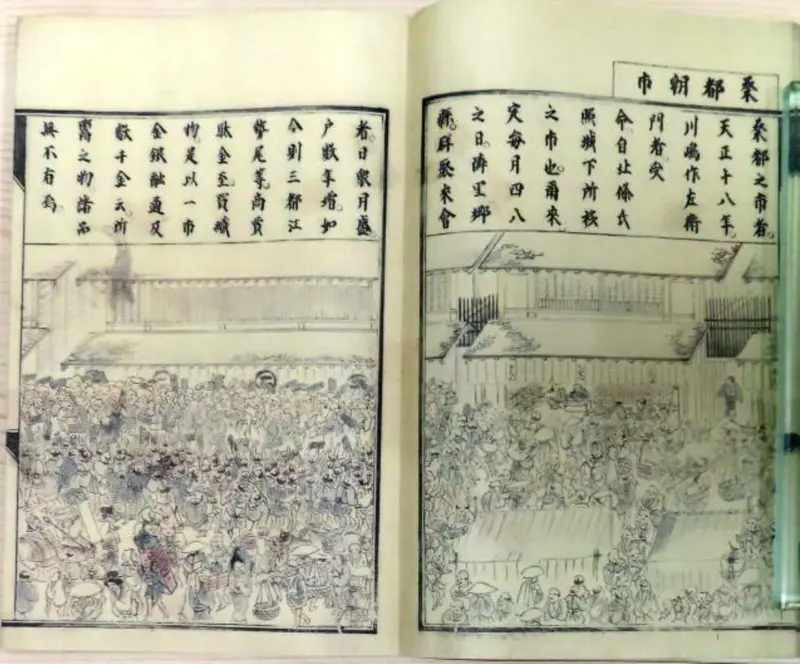 桑都朝市
桑都之市者
天正十八年
川嶋作左衛
門者受
命自北條氏
照城下所移
之市也爾來
定每月四八
之日隣里鄉
縣群聚來會
者日衆月盛
戶數年增如
今則三都江
尾等商賈
駄金至買
物是以一市
金銀融通及
數千金云所
鬻之物諸品
無不有焉